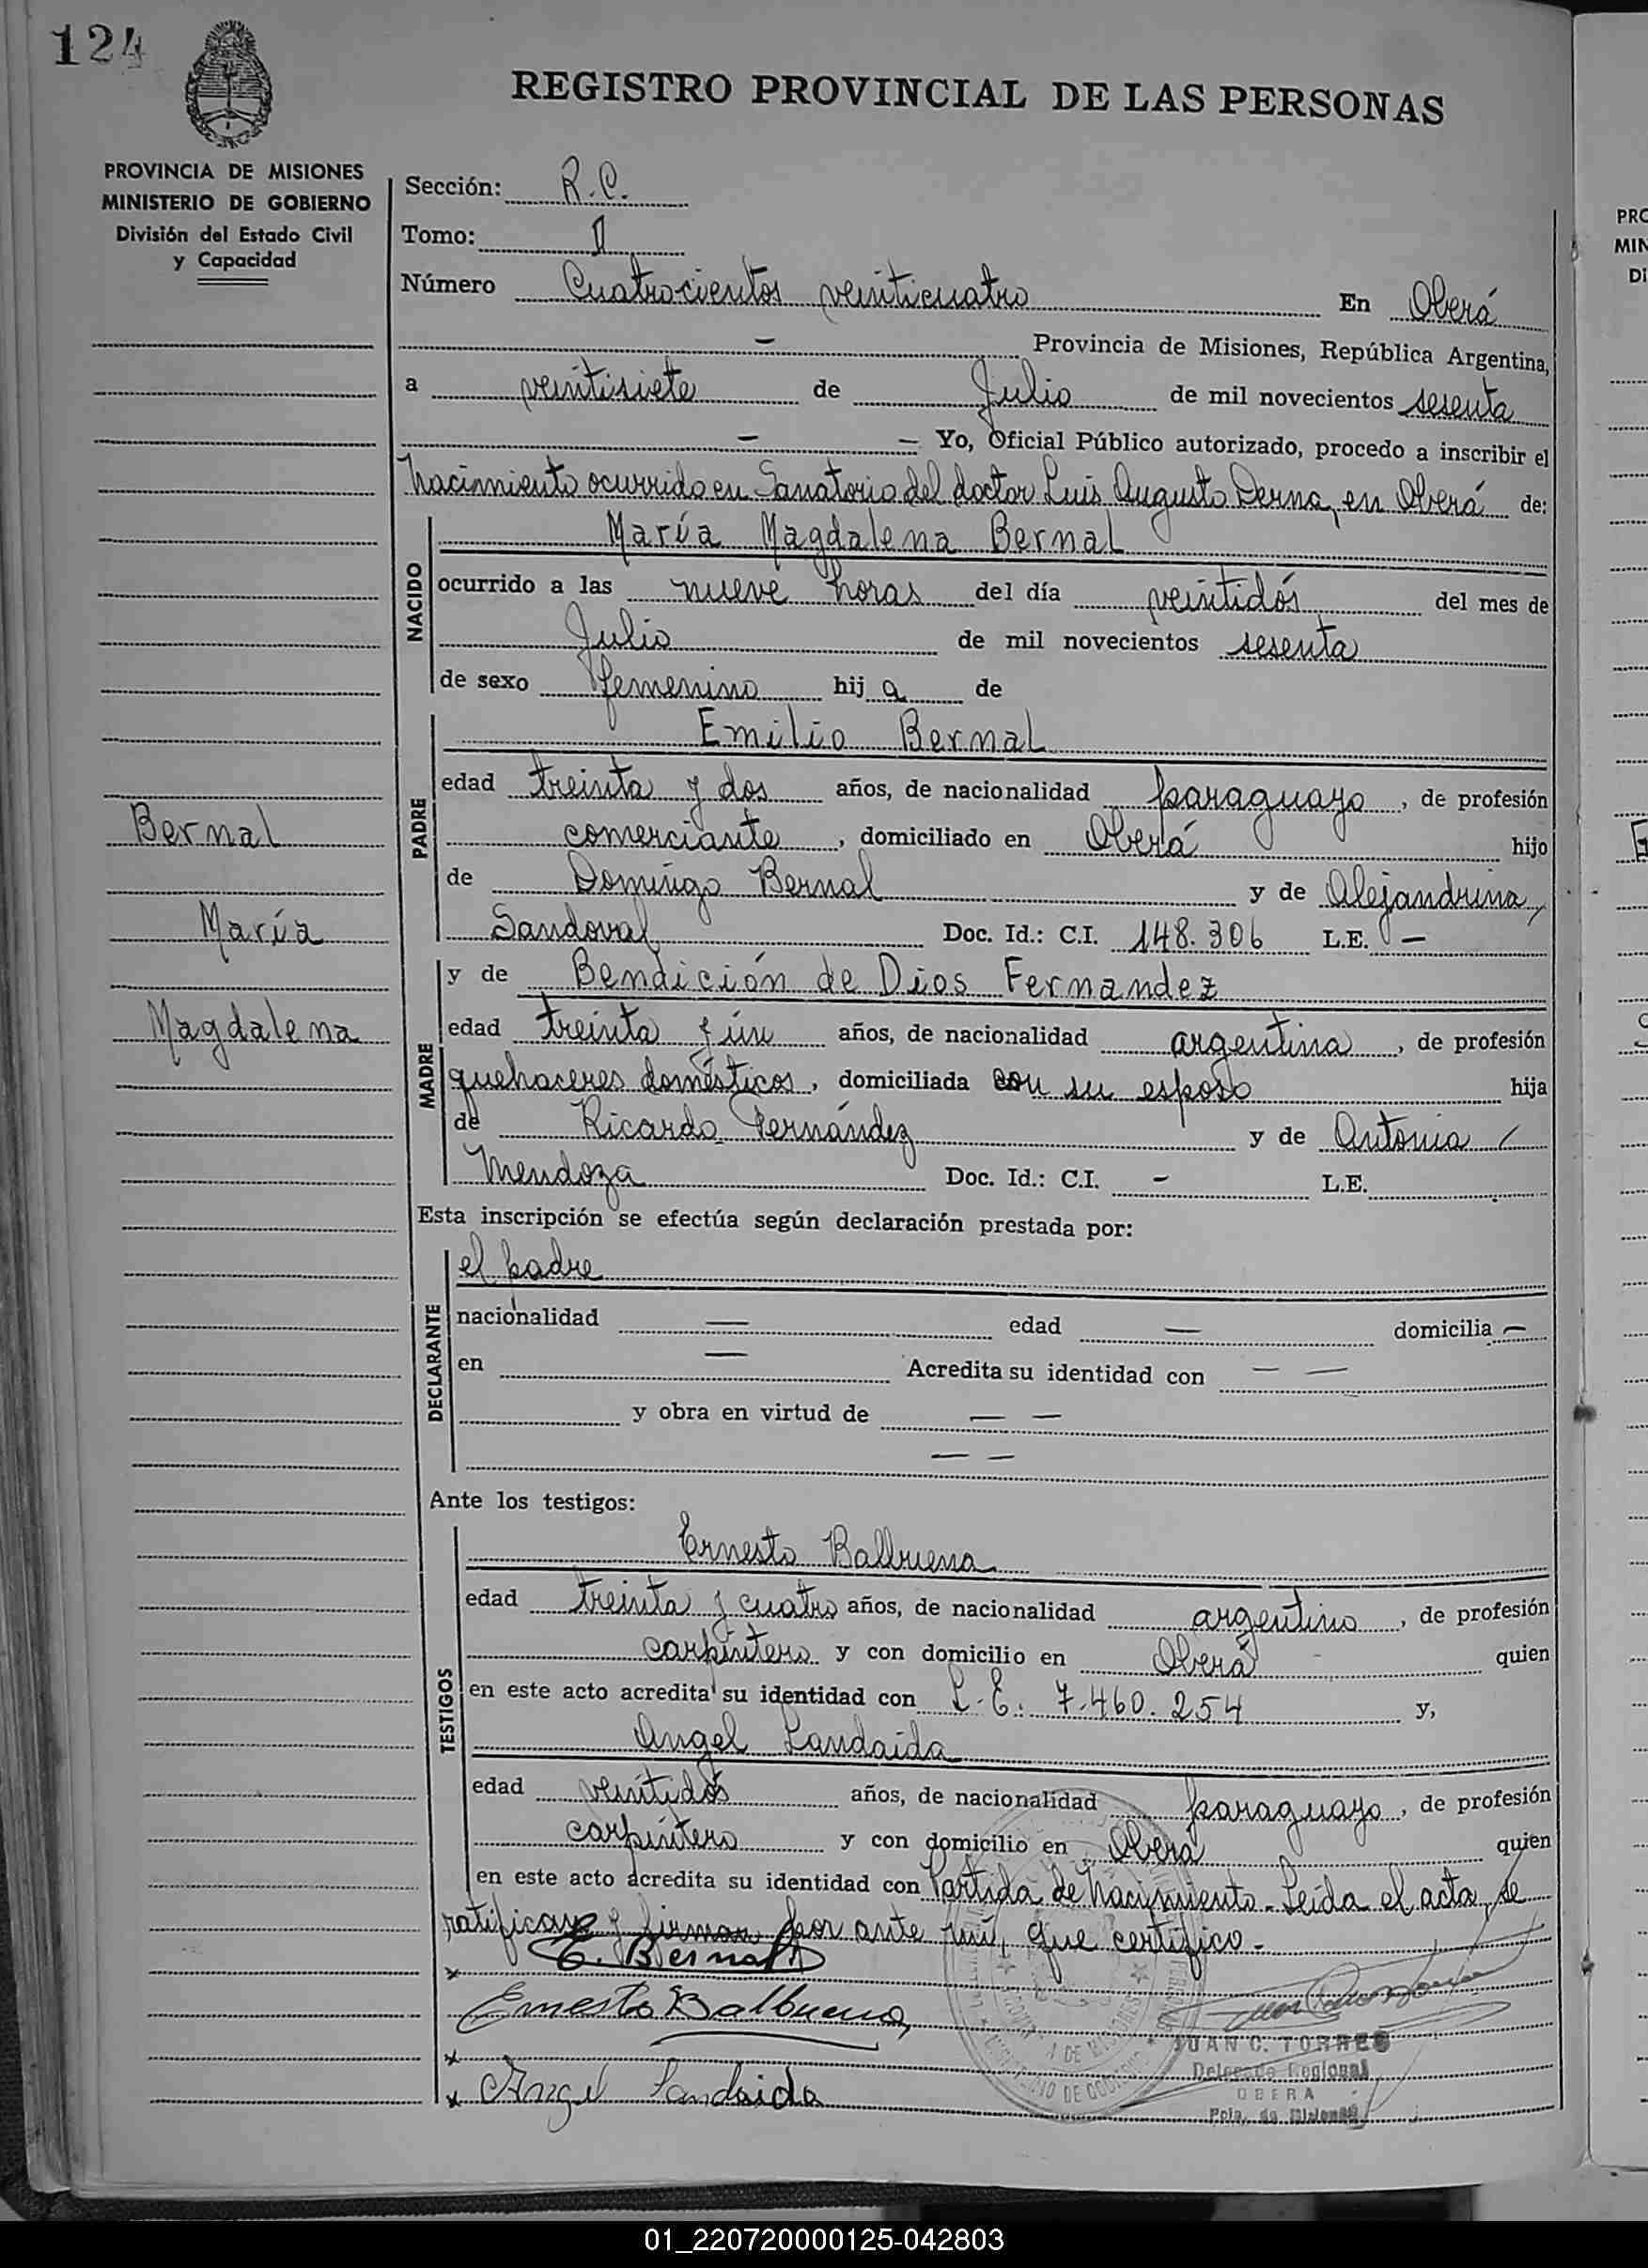 124
REGISTRO PROVINCIAL DE LAS PERSONAS
PROVINCIA DE MISIONES
MINISTERIO DE GOBIERNO
División del Estado Civil
y Capacidad
Sección: R.C.
Tomo: I
Número Cuatrocientos veinticuatro En Oberá
— Provincia de Misiones, República Argentina,
a veintisiete de Julio de mil novecientos sesenta
— — Yo, Oficial Público autorizado, procedo a inscribir el
nacimiento ocurrido en Sanatorio del doctor Luis Augusto Derna, en Oberá de:
NACIDO
María Magdalena Bernal
ocurrido a las nueve horas del día veintidós del mes de
Julio de mil novecientos sesenta
de sexo femenino hija de
PADRE
Emilio Bernal
edad treinta y dos años, de nacionalidad paraguayo, de profesión
comerciante, domiciliado en Oberá hijo
de Domingo Bernal y de Alejandrina
Sandoval Doc. Id.: C.I. 148.306 L.E. —
Bernal
María
Magdalena
MADRE
y de Bendición de Dios Fernandez
edad treinta y ún años, de nacionalidad argentina, de profesión
quehaceres domésticos, domiciliada con su esposo hija
de Ricardo Fernández y de Antonia
Mendoza Doc. Id.: C.I. - L.E.
Esta inscripción se efectúa según declaración prestada por:
DECLARANTE
el padre
nacionalidad — edad — domicilia —
en — Acredita su identidad con — —
y obra en virtud de — —
— —
Ante los testigos:
TESTIGOS
Ernesto Balbuena
edad treinta y cuatro años, de nacionalidad argentino, de profesión
carpintero y con domicilio en Oberá quien
en este acto acredita su identidad con L.E. 7.460.254 y,
Angel Landaida
edad veintidós años, de nacionalidad paraguayo, de profesión
carpintero y con domicilio en Oberá quien
en este acto acredita su identidad con Partida de Nacimiento. Leída el acta, se
ratifican y firman por ante mí, que certifico.-
E. Bernal
Ernesto Balbuena
Angel Landaida
JUAN C. TORRES
Delegado Regional
OBERA
Pcia. de Misiones
PRO
MIN
Di
01_220720000125-042803